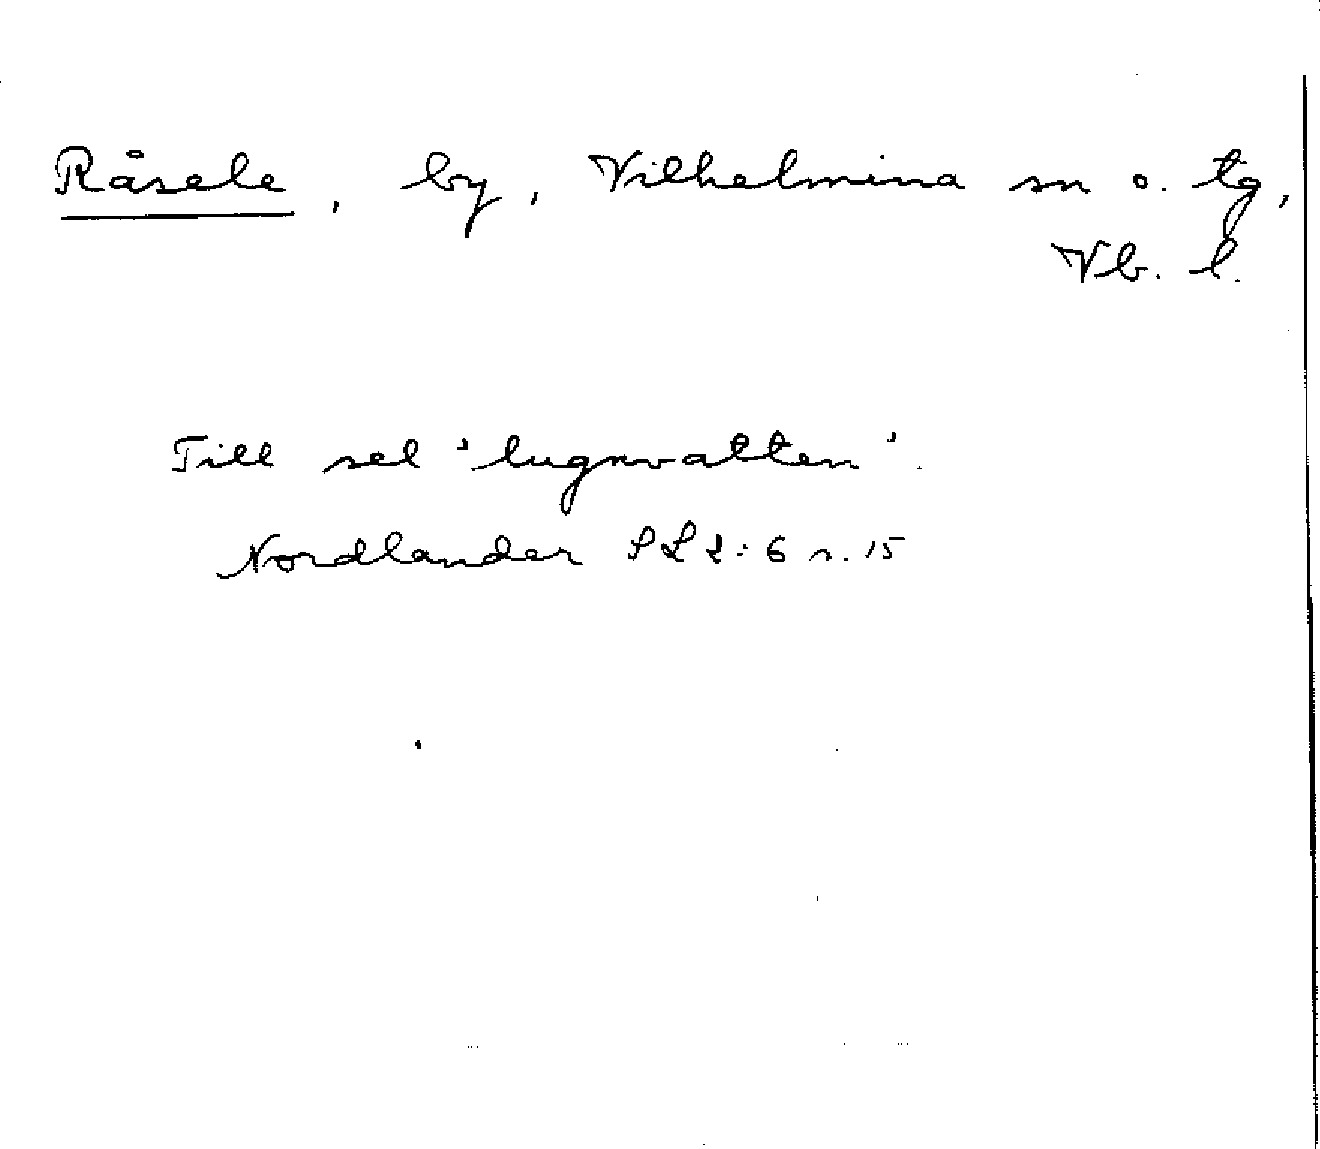 Råsele, by, Vilhelmina sn o. tg,
Vb. l.
Till sel 'lugnvatten'.
Nordlander SL 2:6 s. 15